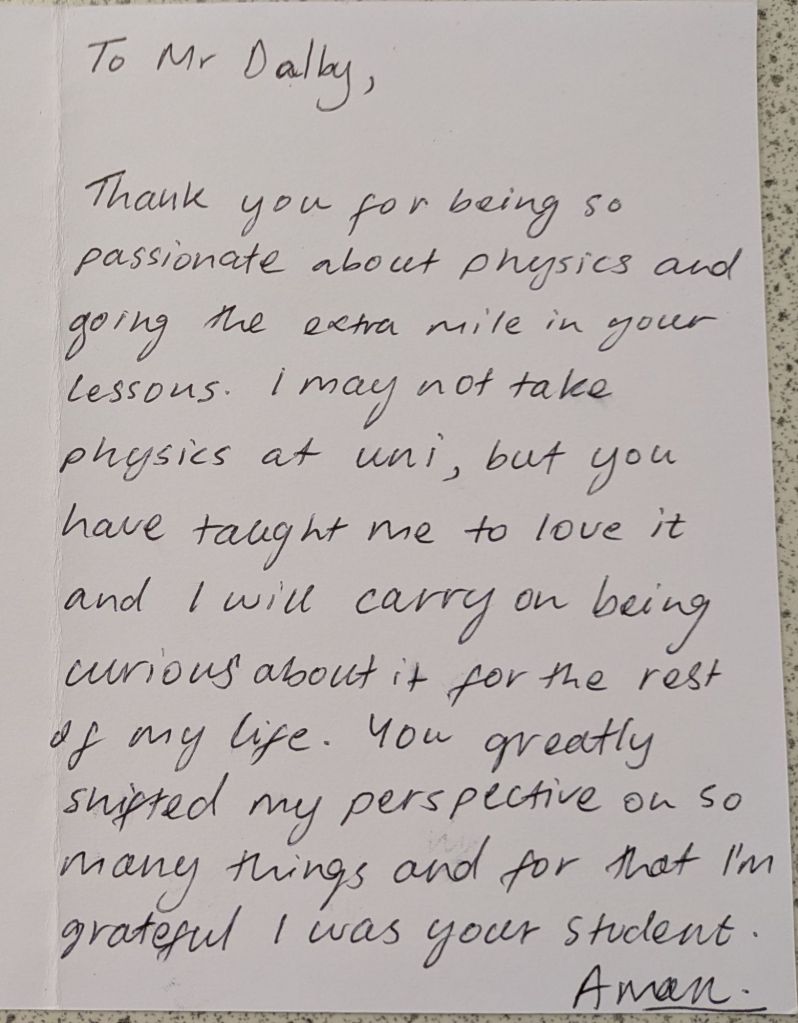 To Mr Dalby,
Thank you for being so
passionate about physics and
going the extra mile in your
lessons. I may not take
physics at uni, but you
have taught me to love it
and I will carry on being
curious about it for the rest
of my life. You greatly
shifted my perspective on so
many things and for that I'm
grateful I was your student.
Aman.